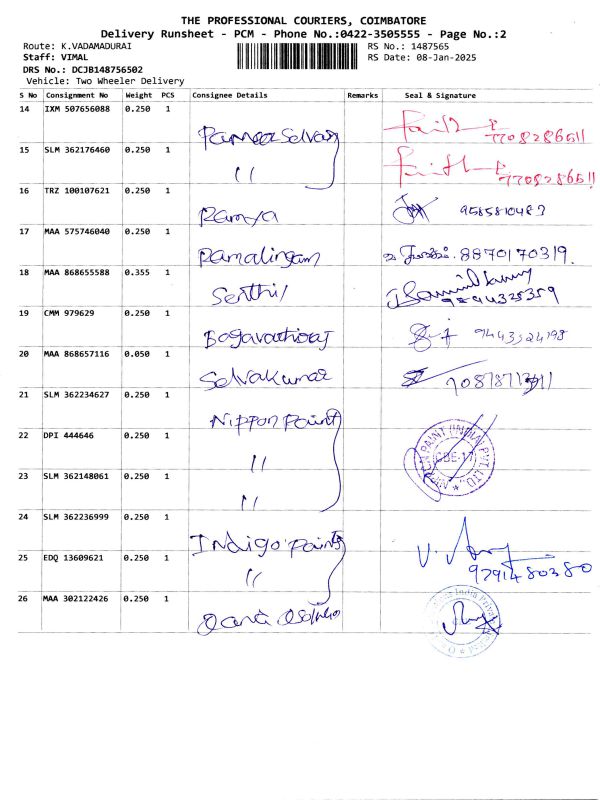 THE PROFESSIONAL COURIERS, COIMBATORE
Delivery Runsheet - PCM - Phone No.:0422-3505555 - Page No.:2
Route: K.VADAMADURAI RS No.: 1487565
Staff: VIMAL RS Date: 08-Jan-2025
DRS No.: DCJB148756502
Vehicle: Two Wheeler Delivery
S No Consignment No Weight PCS Consignee Details Remarks Seal & Signature
14 IXM 507656088 0.250 1 7708286511
15 SLM 362176460 0.250 1 " 7708286511
16 TRZ 100107621 0.250 1 Ramya
17 MAA 575746040 0.250 1 Ramalingam 8870170319.
18 MAA 868655588 0.355 1 Senthil
19 CMM 979629 0.250 1 Bagavathiraj
20 MAA 868657116 0.050 1 Selvakumar
21 SLM 362234627 0.250 1 Nippon Paint
22 DPI 444646 0.250 1 " CBE-17
23 SLM 362148061 0.250 1 "
24 SLM 362236999 0.250 1 Indigo Paints
25 EDQ 13609621 0.250 1 " 9791480380
26 MAA 302122426 0.250 1